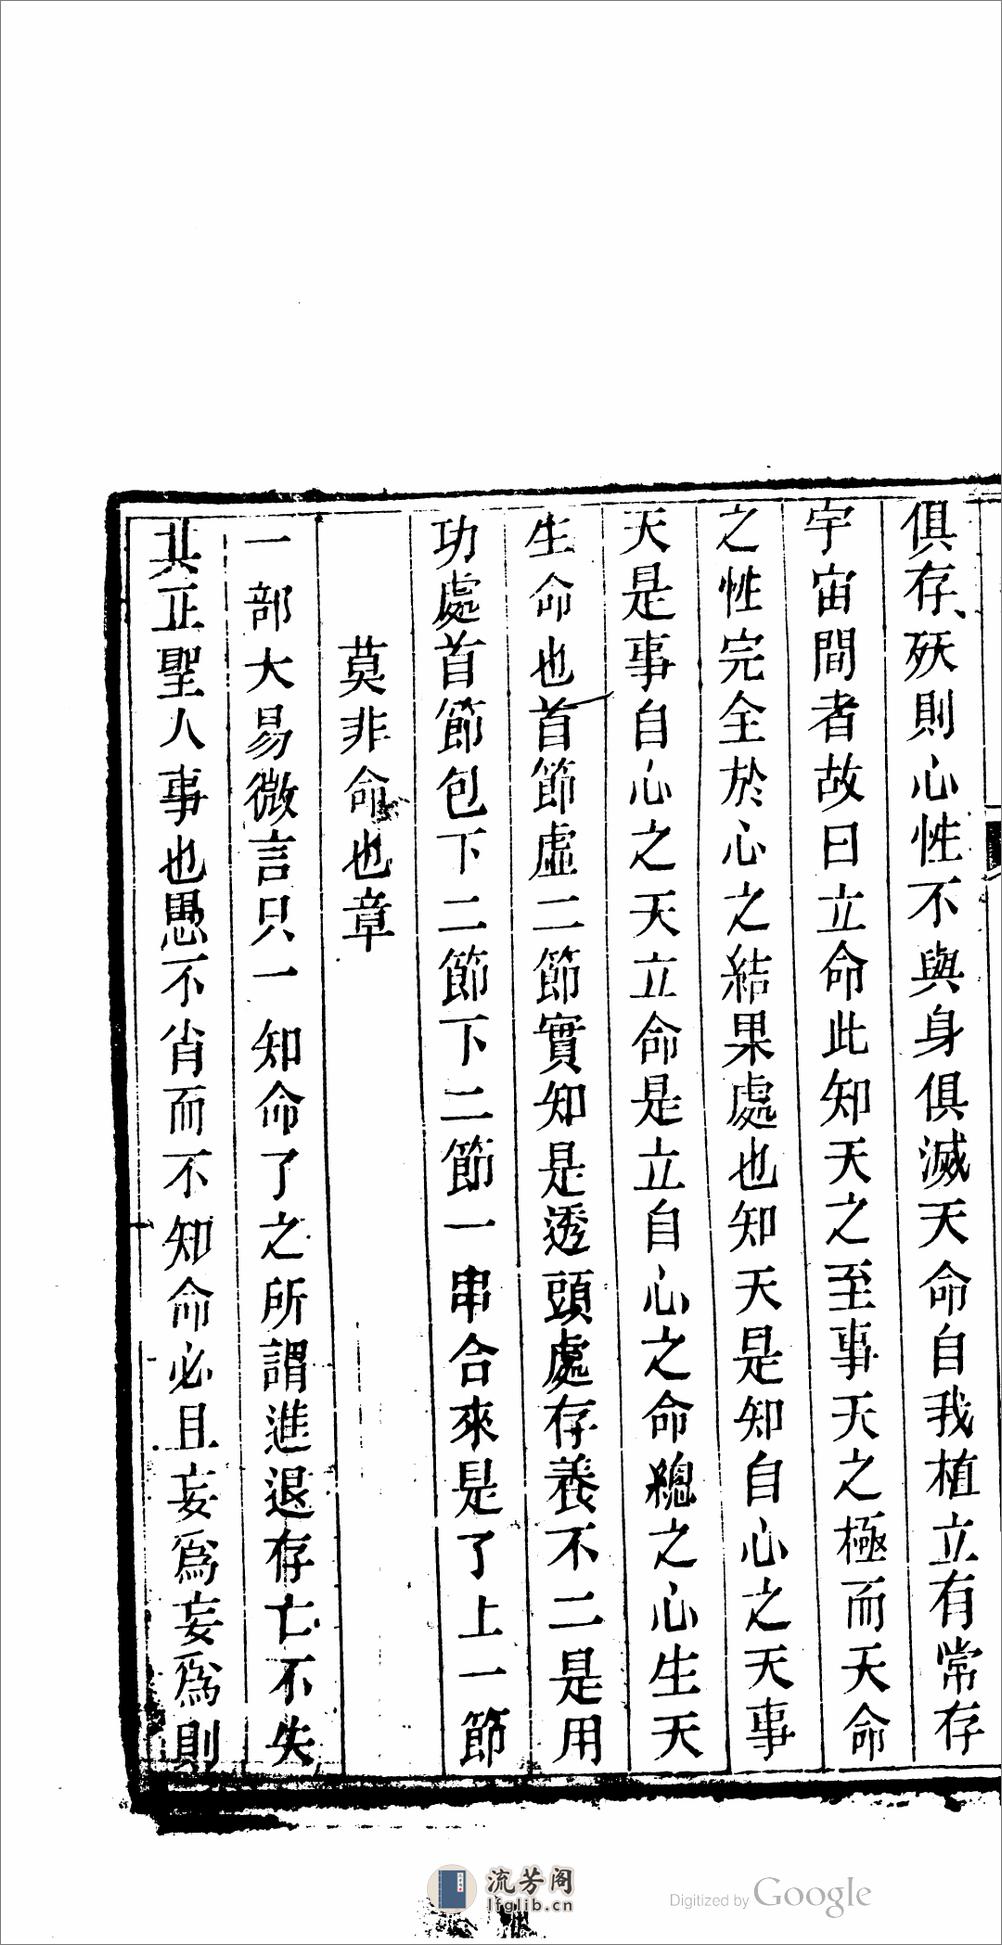 俱存殀則心性不與身俱滅天命自我植立有常存
宇宙間者故曰立命此知天之至事天之極而天命
之性完全於心之結果處也知天是知自心之天事
天是事自心之天立命是立自心之命總之心生天
生命也首節虛二節實知是透頭處存養不二是用
功處首節包下二節下二節一串合來是了上一節
莫非命也章
一部大易微言只一知命了之所謂進退存亡不失
其正聖人事也愚不肖而不知命必且妄爲妄爲則
流芳阁
lfglib.cn
Digitized by Google